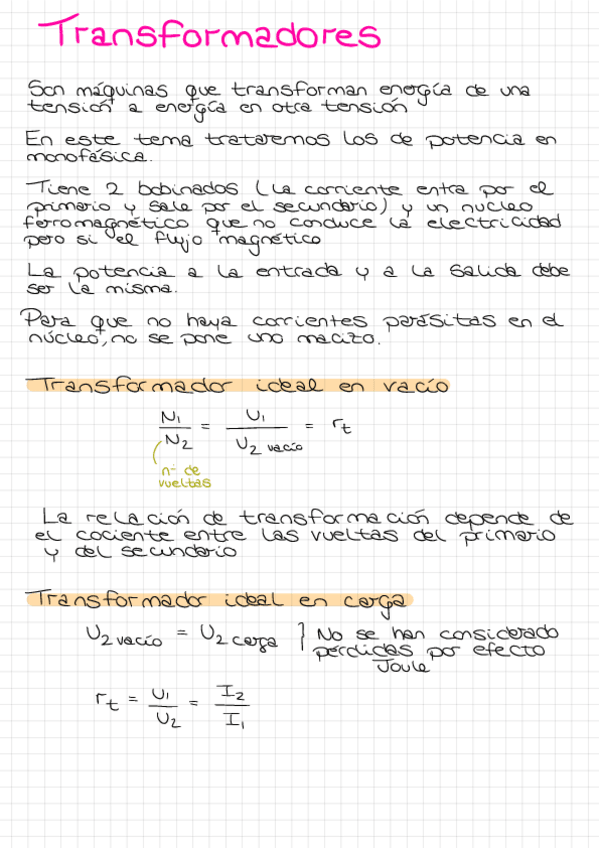 Transformadores
Son máquinas que transforman energía de una
tensión a energía en otra tensión
En este tema trataremos los de potencia en
monofásica.
Tiene 2 bobinados (la corriente entra por el
primario y sale por el secundario) y un nucleo
ferromagnético que no conduce la electricidad
pero si el flujo magnético
La potencia a la entrada y a la salida debe
ser la misma.
Para que no haya corrientes parásitas en el
núcleo, no se pone uno macizo.
Transformador ideal en vacío
N1/N2 = U1/U2 vacío = rt
nº de
vueltas
La relación de transformación depende de
el cociente entre las vueltas del primario
y del secundario
Transformador ideal en carga
U2 vacío = U2 carga } No se han considerado
pérdidas por efecto
Joule
rt = U1/U2 = I2/I1